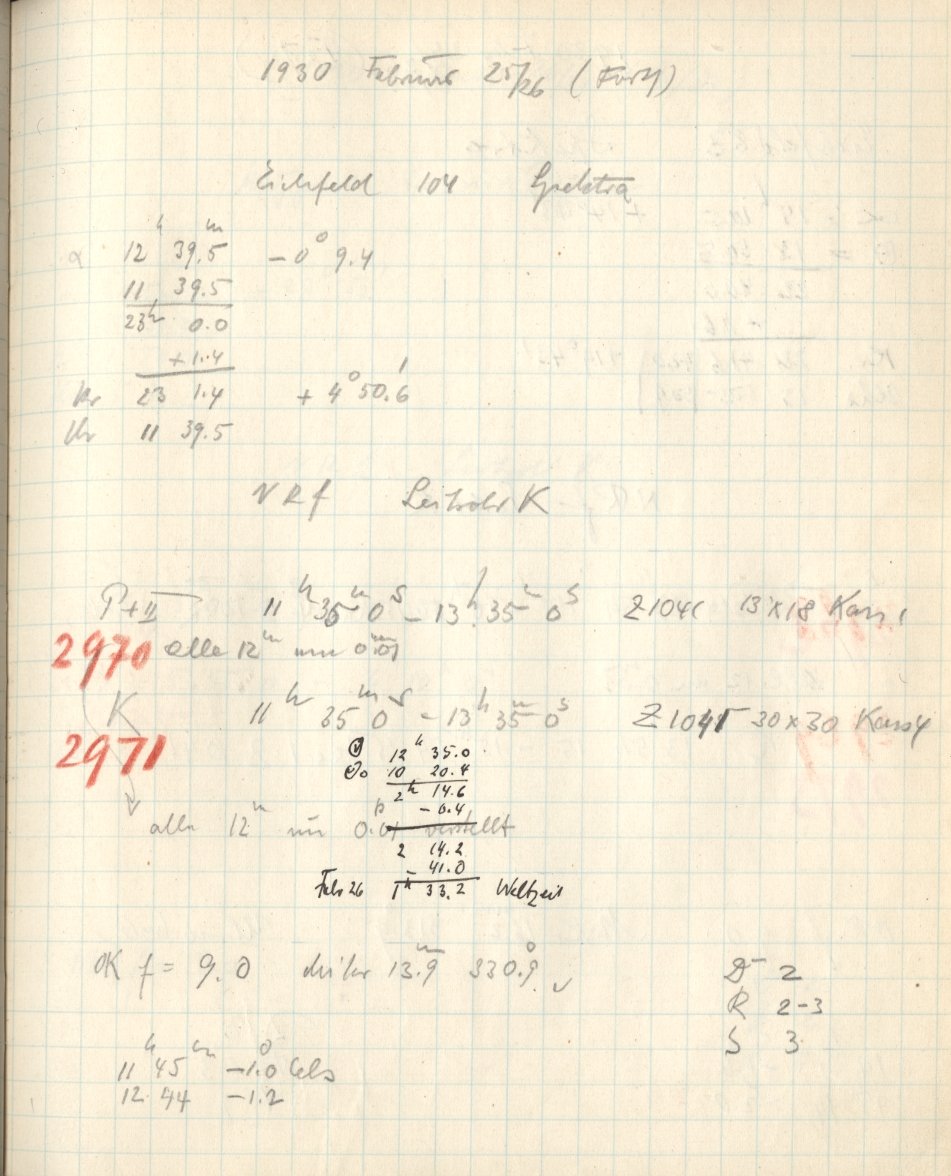 1930 Februar 25/26 (Forts)
Eichfeld 104 Spektra
α 12h 39.5m −0° 9.4
11 39.5
23h 0.0
+1.4
Kr 23 1.4 + 4° 50.6'
Uhr 11 39.5
NRf Leitrohr K
P+II 11h 35m 0s − 13h 35m 0s Z1041 13x18 Kass 1
2970 alle 12m um 0.01
K 11h 35m 0s − 13h 35m 0s Z1041 30x30 Kass 4
2971
12h 35.0
10 20.4
2h 14.6
− 0.4
alle 12m um 0.01 verstellt
2 14.2
− 41.0
Febr 26 1h 33.2 Weltzeit
OK f = 9.0 13.9m 330.9° ✓
D 2
R 2-3
S 3
11h 45m −1.0° Cels
12 44 −1.2